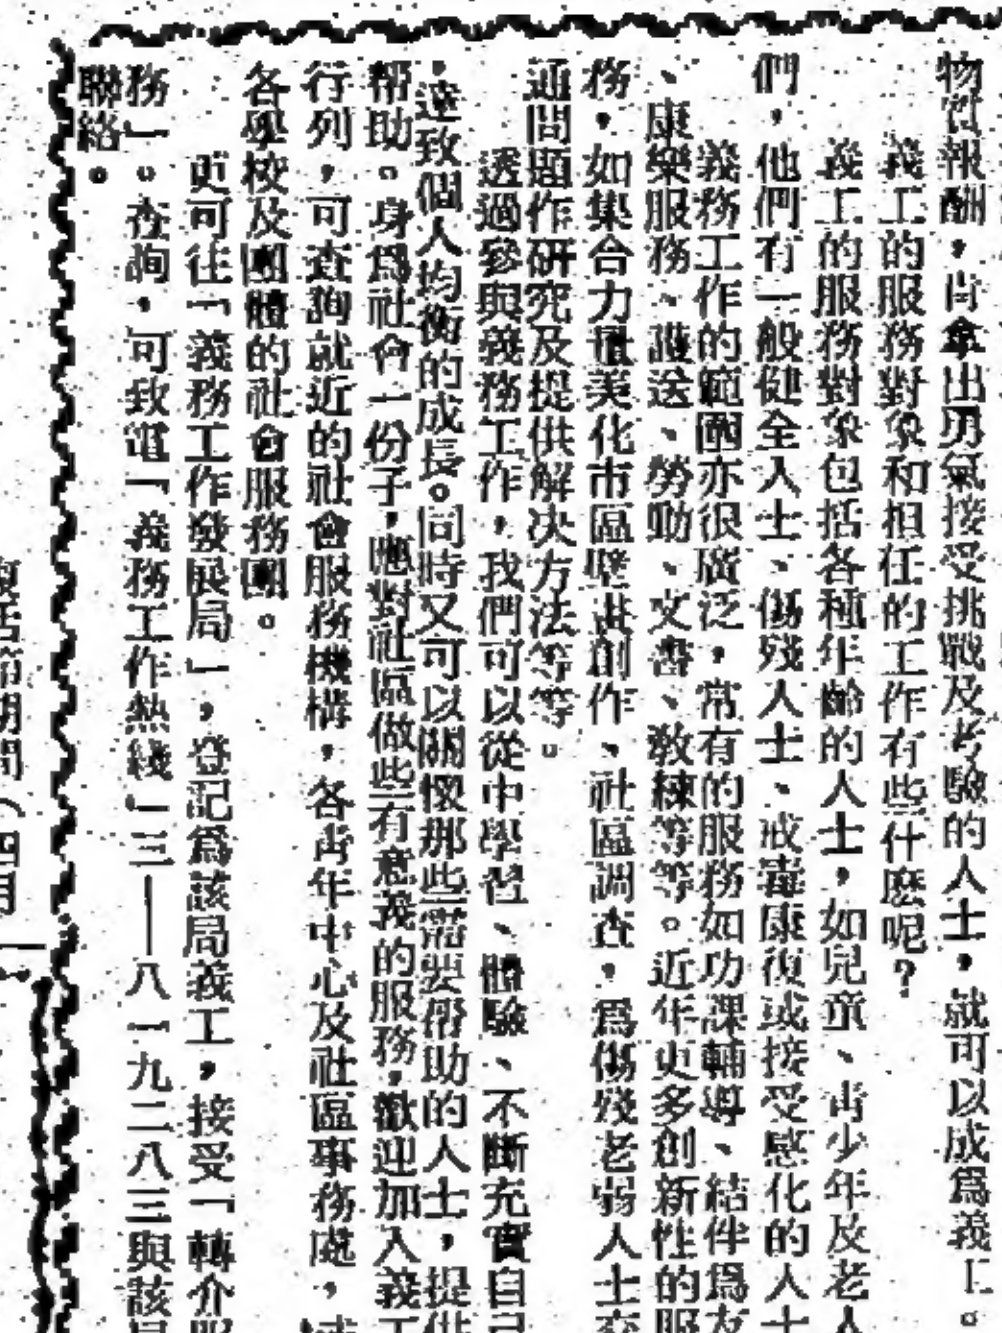 物質報酬，肯拿出勇氣接受挑戰及考驗的人士，就可以成爲義工。
義工的服務對象和担任的工作有些什麽呢？
義工的服務對象包括各種年齡的人士，如兒童、靑少年及老人
們，他們有一般健全人士、傷殘人士、戒毒康復或接受感化的人士
義務工作的範圍亦很廣泛，常有的服務如功課輔導、結伴爲友
、康樂服務、護送、勞動、文書、敎練等等。近年更多創新性的服
務，如集合力量美化市區壁畫創作、社區調查，爲傷殘老弱人士交
通問題作研究及提供解决方法等等。
透過參與義務工作，我們可以從中學習、體驗、不斷充實自己
，達致個人均衡的成長。同時又可以關懷那些需要帮助的人士，提供
帮助。身爲社會一份子，應對社區做些有意義的服務，歡迎加入義工
行列，可查詢就近的社會服務機構，各靑年中心及社區事務處，或
各學校及團體的社會服務團。
更可往「義務工作發展局」，登記爲該局義工，接受「轉介服
務」。查詢，可致電「義務工作熱綫」三——八一九二八三與該局
聯絡。
復活節期間（四月一